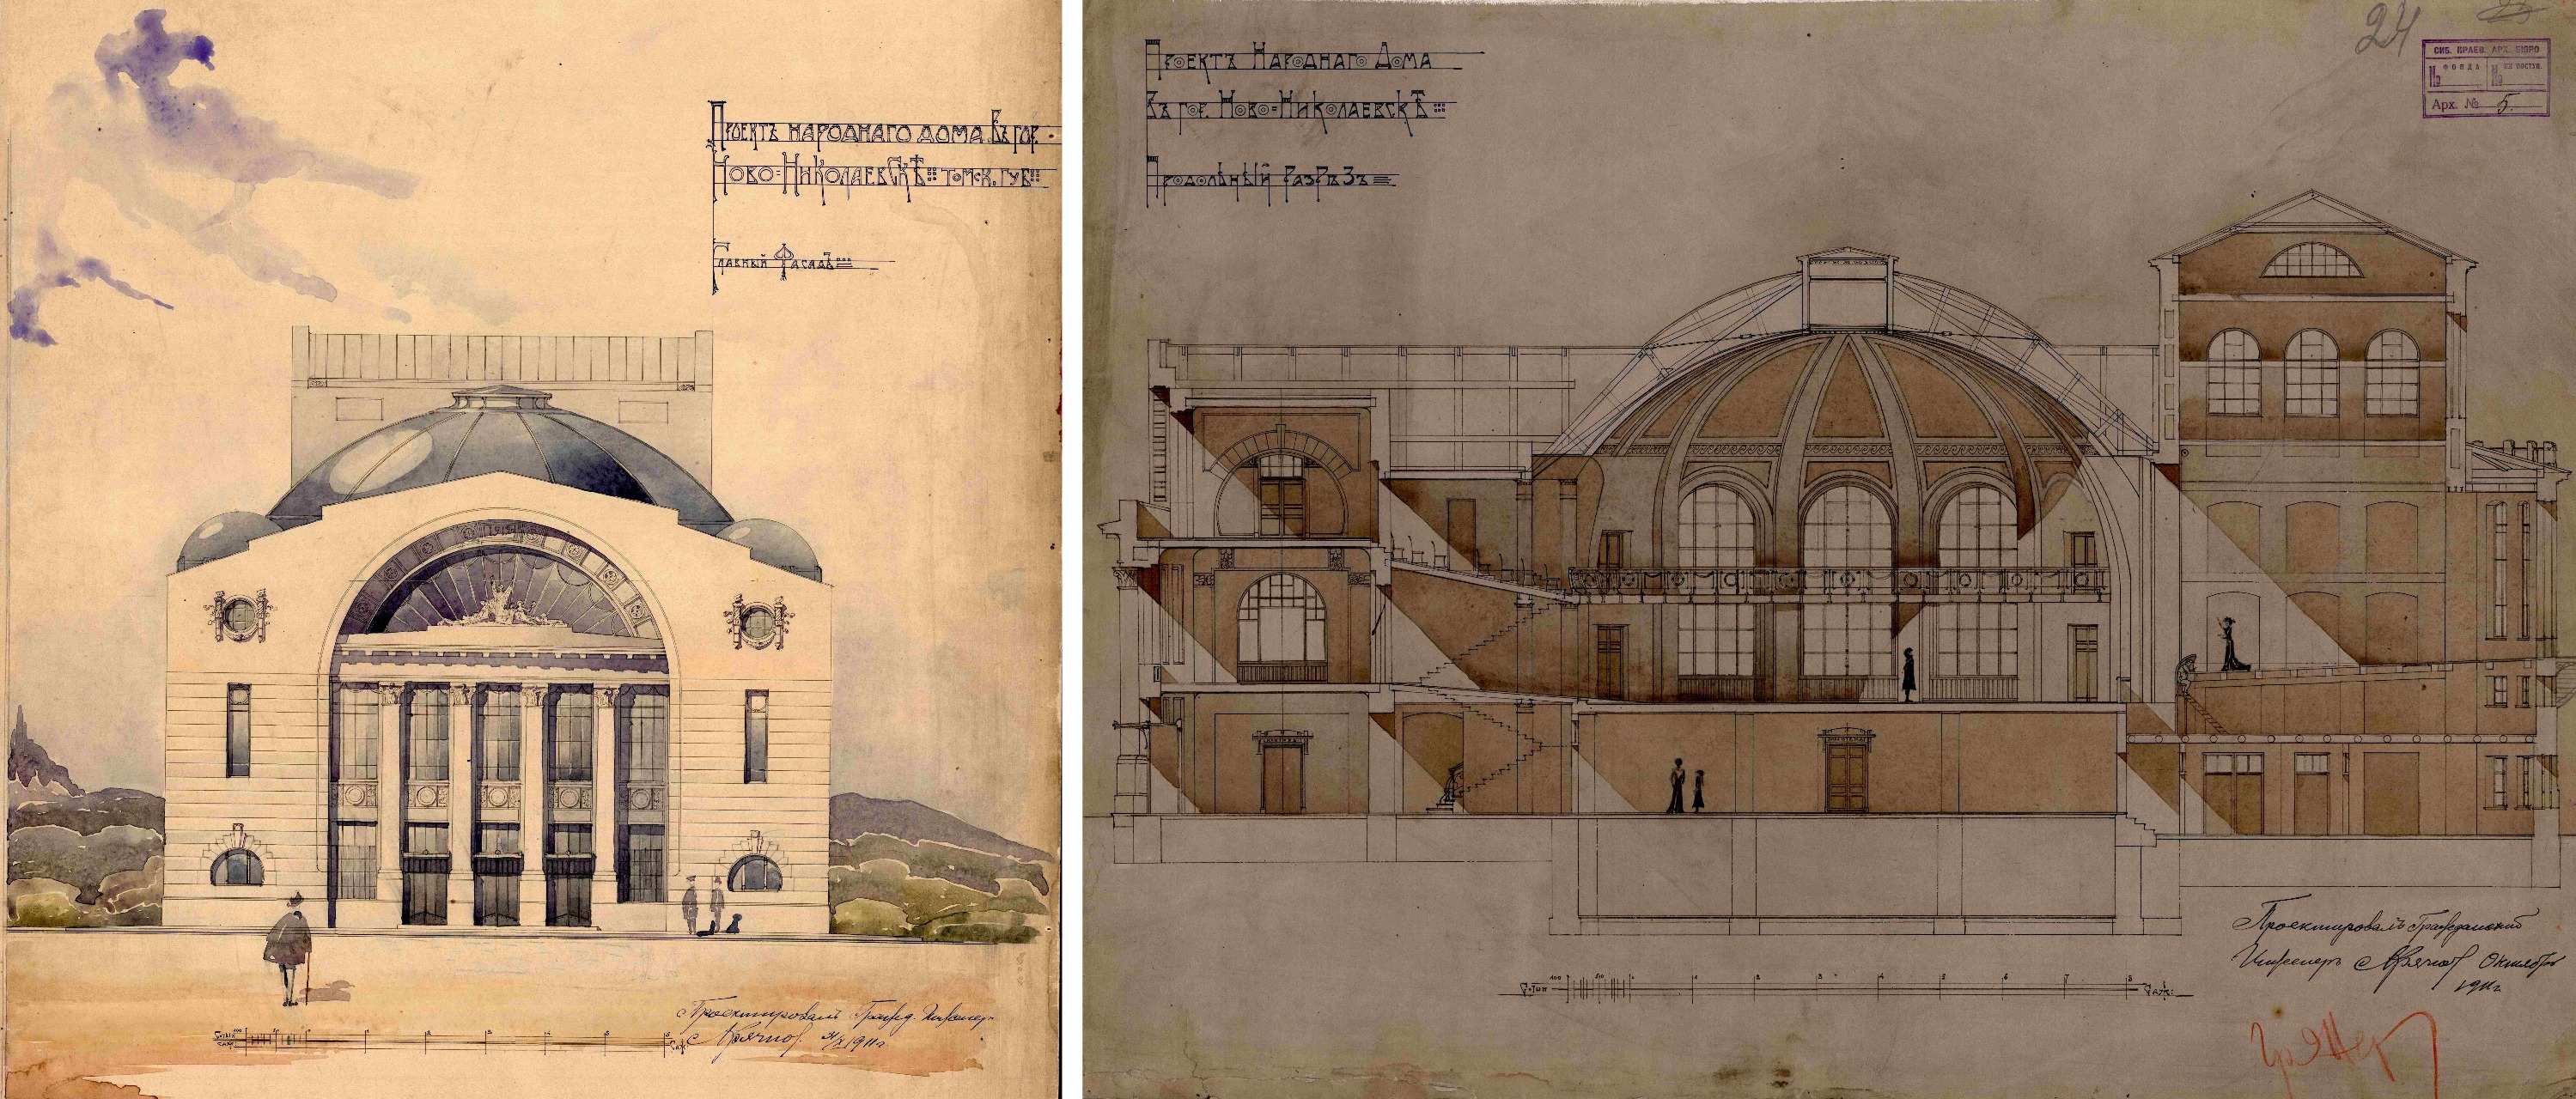 Проектъ народнаго дома въ гор.
Ново=Николаевскѣ томск. губ
Главный Фасадъ
1912
Проектировалъ Гражд. Инженер
А Крячков 1911 г.
Проектъ Народнаго Дома
Въ гор. Ново=Николаевскѣ
Продольный Разрѣзъ
24
СИБ. КРАЕВ. АРХ. БЮРО
№ ФОНДА № ПОСТУП.
Арх. № 5.
100 50 0 1 2 3 4 5 6 7 8
Сотых Саж:
Проектировалъ Гражданский
Инженеръ А Крячков Октябрь
1911 г.